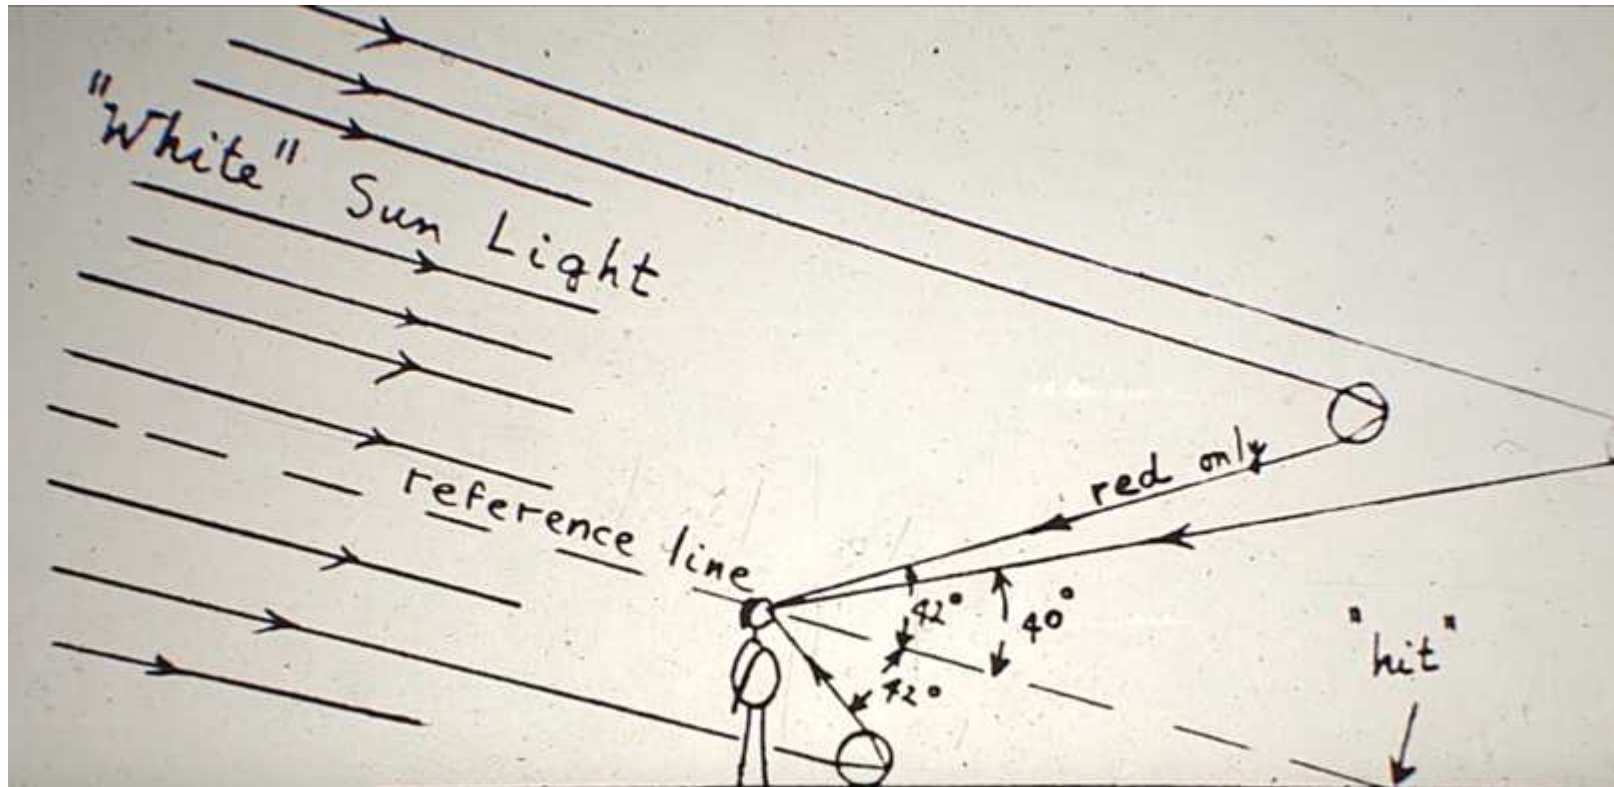 "White" Sun Light
reference line
red only
42°
40°
42°
"hit"